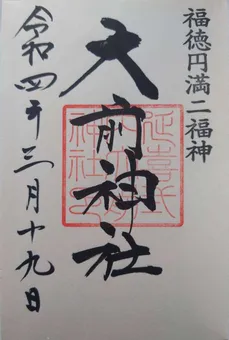 福徳円満二福神
大前神社
令和四年三月十九日
延喜式